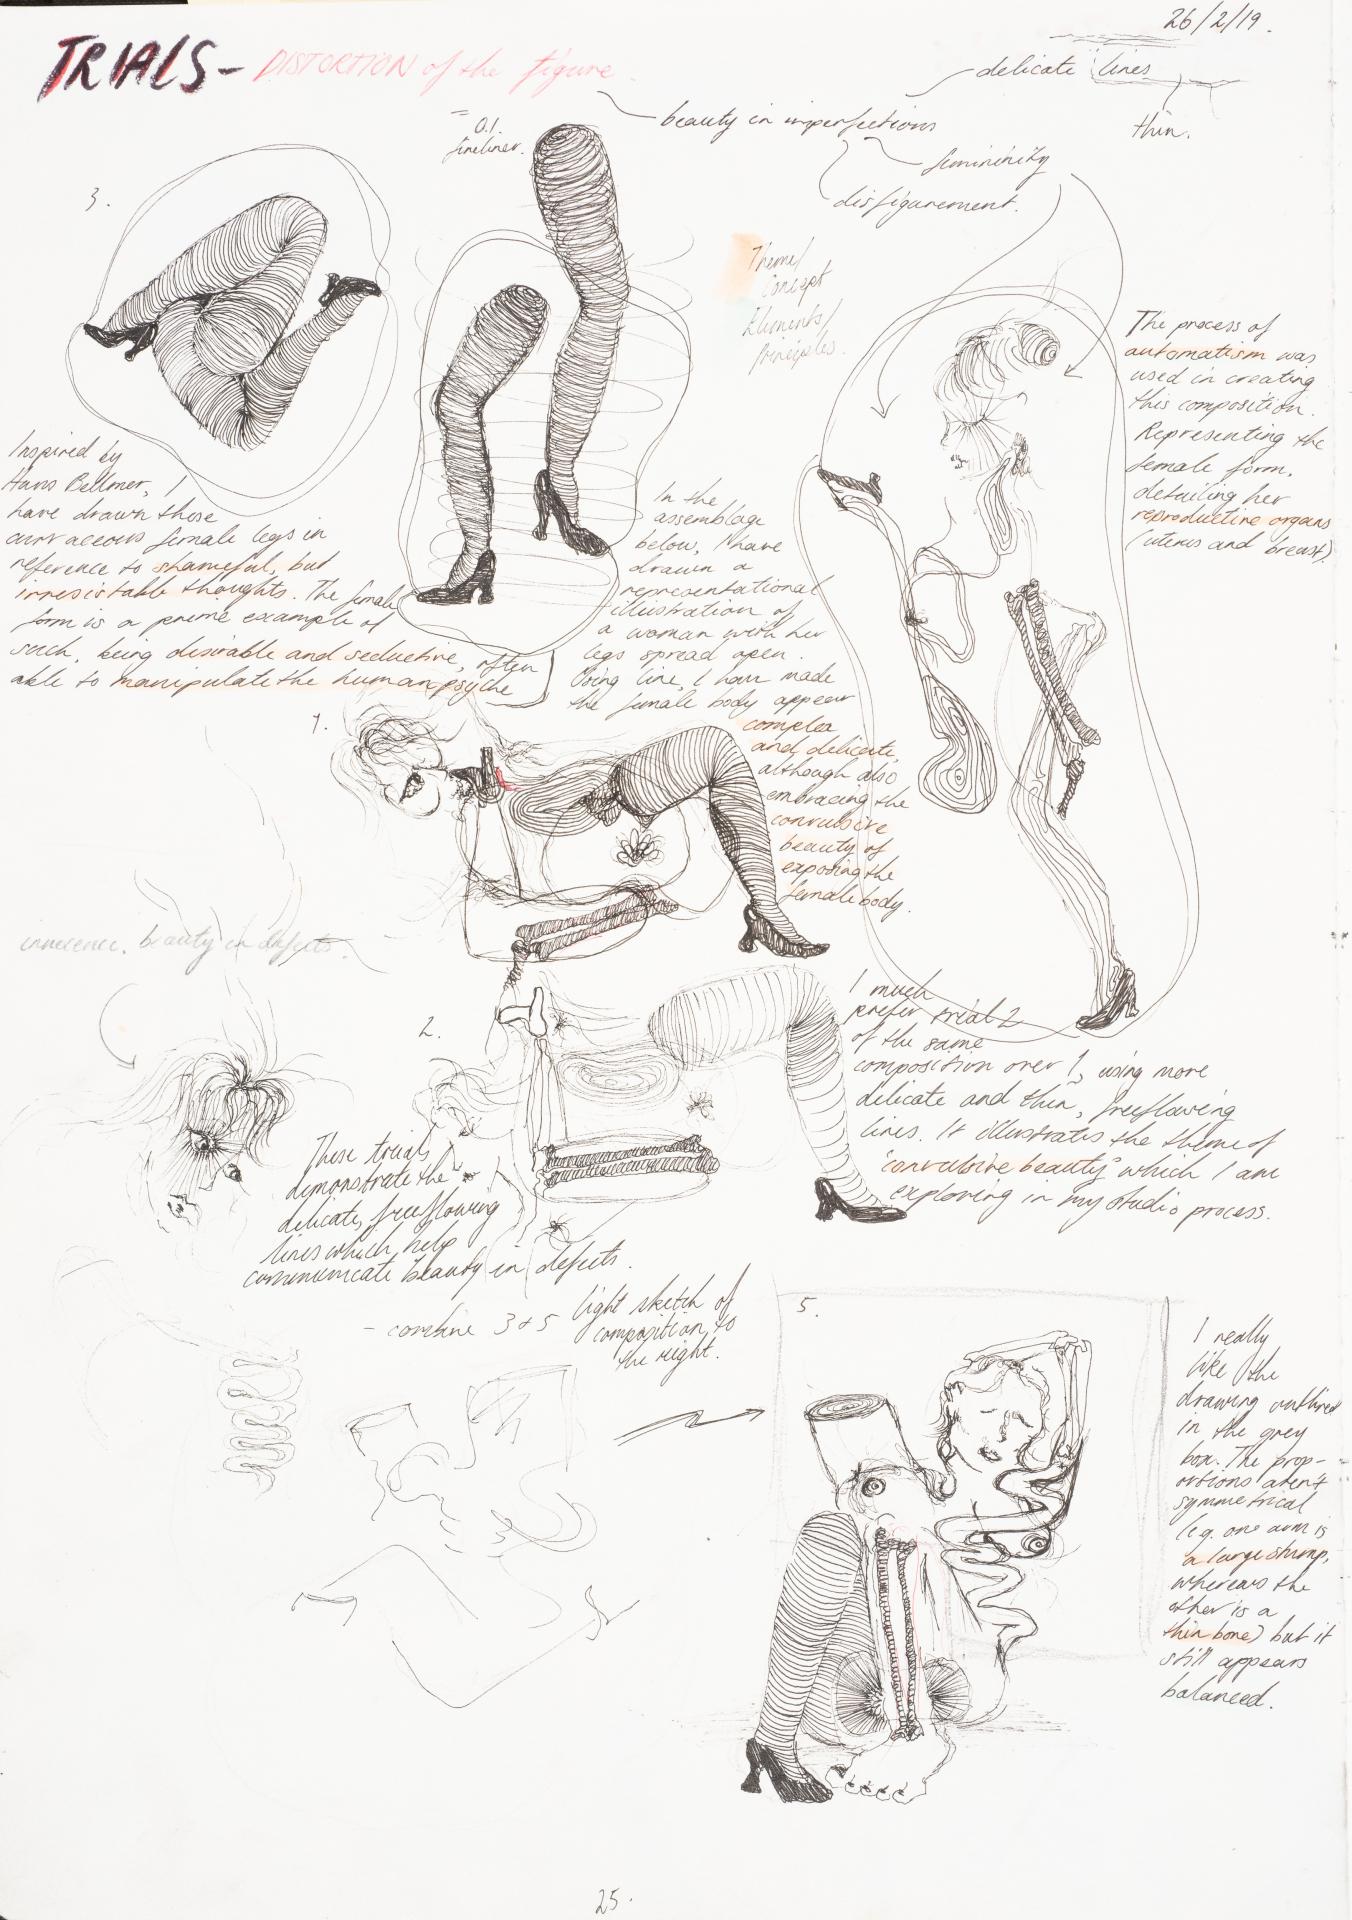 26/2/19.
TRIALS - DISTORTION of the figure
delicate lines
thin.
beauty in imperfections
femininity
disfigurement.
0.1.
fineliner.
3.
Theme/
Concept
Elements/
Principles.
The process of
automatism was
used in creating
this composition.
Representing the
female form,
detailing her
reproductive organs
(uterus and breast).
Inspired by
Hans Bellmer, I
have drawn these
curvaceous female legs in
reference to shameful, but
irresistable thoughts. The female
form is a prime example of
such, being desirable and seductive, often
able to manipulate the human psyche
In the
assemblage
below, I have
drawn a
representational
illustration of
a woman with her
legs spread open.
Using line, I have made
the female body appear
complex
and delicate,
although also
embracing the
convulsive
beauty of
exposing the
female body.
1.
innocence. beauty in defects.
2.
I much
prefer trial 2
of the same
composition over 1, using more
delicate and thin, freeflowing
lines. It illustrates the theme of
'convulsive beauty' which I am
exploring in my studio process.
These trials
demonstrate the
delicate, freeflowing
lines which help
communicate beauty in defects.
- combine 3 & 5
light sketch of
composition to
the right.
5.
I really
like the
drawing outlined
in the grey
box. The prop-
ortions aren't
symmetrical
(e.g. one arm is
a large stump,
whereas the
other is a
thin bone) but it
still appears
balanced.
25.